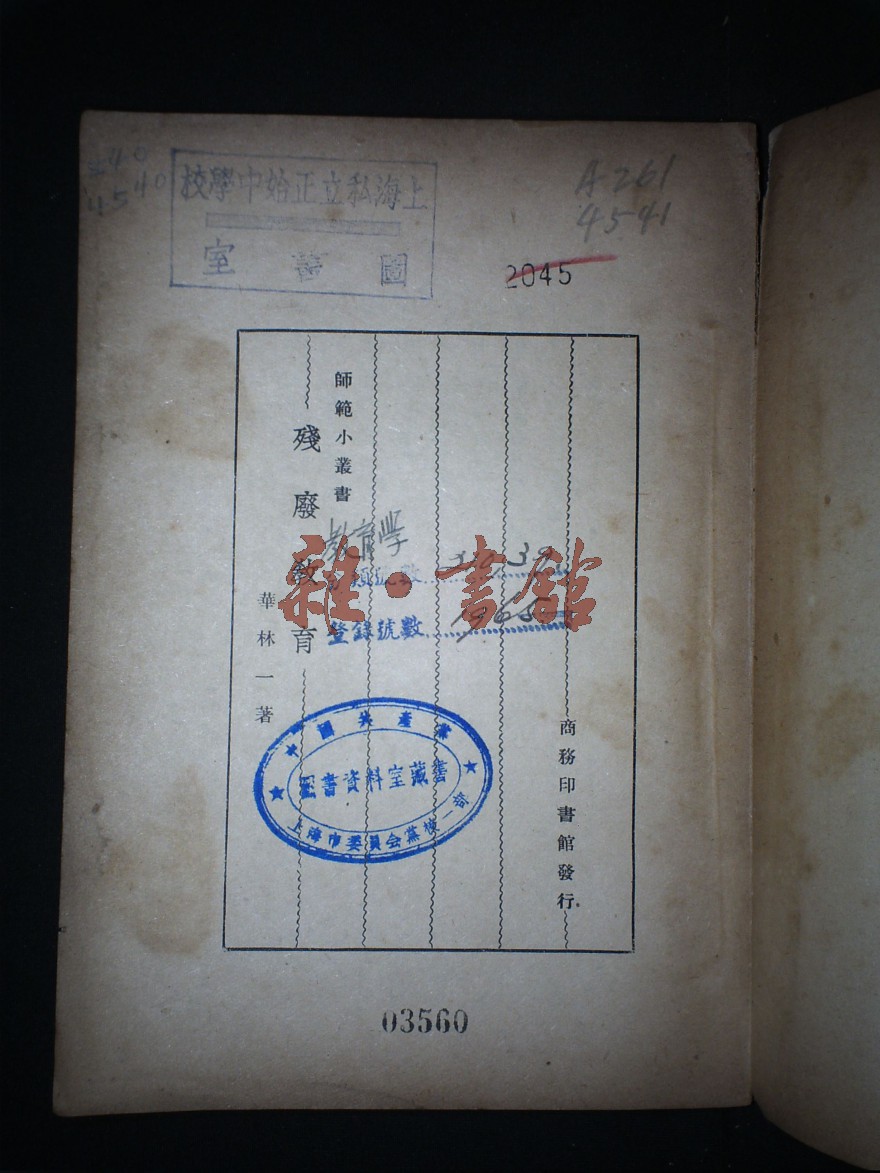 上海私立正始中學校
圖書室
A-261
4541
2045
師範小叢書
殘廢教育
華林一著
商務印書館發行
教育學
登錄號數
1965
雜·書館
中國共產黨
圖書資料室藏書
上海市委員会黨校一部
03560